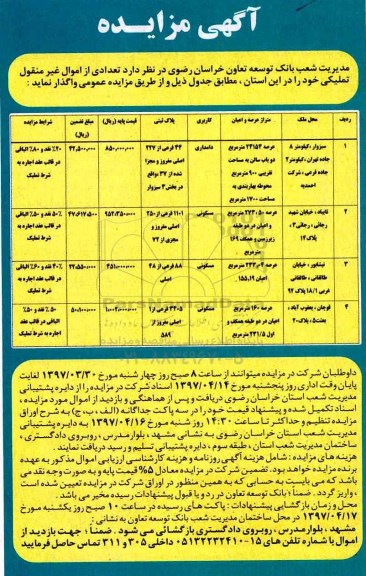 آگهی مزایده
مدیریت شعب بانک توسعه تعاون خراسان رضوی در نظر دارد تعدادی از اموال غیر منقول
تملیکی خود را در این استان ، مطابق جدول ذیل و از طریق مزایده عمومی واگذار نماید :
ردیف محل ملک متراژ عرصه و اعیان کاربری پلاک ثبتی قیمت پایه (ریال) مبلغ تضمین (ریال) شرایط مزایده
۱ سبزوار ،کیلومتر ۸ جاده تهران ،کیلومتر۲ جاده فرعی ، شرکت احمدیه
عرصه ۲۳۱۵۳ مترمربع دو باب سالن به مساحت تقریبی ۹۰۰ مترمربع محوطه بهاربندی به مساحت ۱۷۰۰ مترمربع
دامداری
۴۴ فرعی از ۲۲۷ اصلی مفروز و مجزا شده از ۳۷ مواقع در بخش۳ سبزوار
۸۵۰،۰۰۰،۰۰۰ ۴۲،۵۰۰،۰۰۰
۲۰٪ نقد و ۸۰٪ الباقی در قالب عقد اجاره به شرط تملیک
۲ تایباد ، خیابان شهید رجائی ، رجائی۳ ، پلاک ۱۴
مسکونی
۱۱۰۱ فرعی از ۲۵۰ اصلی مفروز و مجزی از ۷۲
۹۵۲،۳۵۰،۰۰۰ ۴۷،۶۱۷،۵۰۰
۵۰٪ نقد و ۵۰٪ الباقی در قالب عقد اجاره به شرط تملیک
۳ نیشابور ، خیابان طالقانی ، طالقانی غربی ۱۸/۱ پلاک ۹۲
مسکونی
۸۸ فرعی از ۲۸ اصلی
۴۰٪ نقد و ۶۰٪ الباقی در قالب عقد اجاره به شرط تملیک
۴ قوچان ، یعقوب آباد ، بعثت۵ ، پلاک۲۰
عرصه ۱۶۰ مترمربع اعیان در دو طبقه همکف و اول ۲۳۱/۵ مترمربع
مسکونی
اصلی مفروز از ۵۸۹
۵۰٪ نقد و ۵۰٪ الباقی در قالب عقد اجاره به شرط تملیک
داوطلبان شرکت در مزایده میتوانند از ساعت ۸ صبح روز چهارشنبه مورخ ۱۳۹۷/۰۳/۳۰ لغایت
پایان وقت اداری روز پنجشنبه مورخ ۱۳۹۷/۰۴/۱۴ اسناد شرکت در مزایده را از دایره پشتیبانی
مدیریت شعب استان خراسان رضوی دریافت و پس از هماهنگی و بازدید از اموال مورد مزایده ،
اسناد تکمیل شده و پیشنهاد قیمت خود را در سه پاکت جداگانه (الف ، ب ، ج) به شرح اوراق
مزایده تنظیم و حداکثر تا ساعت ۱۴:۳۰ روز شنبه مورخ ۱۳۹۷/۰۴/۱۶ به دایره پشتیبانی
مدیریت شعب استان خراسان رضوی به نشانی مشهد ، بلوار مدرس ، روبروی دادگستری ،
ساختمان مدیریت شعب استان ،طبقه سوم ، دایره پشتیبانی تسلیم و رسید دریافت نمایند .
هزینه های مزایده : شامل هزینه آگهی روزنامه و هزینه کارشناسی ارزیابی اموال مذکور به عهده
برنده مزایده خواهد بود. تضمین شرکت در مزایده معادل ۵٪ قیمت پایه و به صورت وجه نقد می
باشد که می بایست به حسابی که به همین منظور در اوراق شرکت در مزایده تعیین شده است
، واریز گردد . ضمناً ؛ بانک توسعه تعاون در رد و یا قبول پیشنهادات رسیده مخیر می باشد .
محل و زمان بازگشایی پیشنهادات : پاکت های رسیده در ساعت ۱۰ صبح روز یکشنبه مورخ
۱۳۹۷/۰۴/۱۷ در محل ساختمان مدیریت شعب بانک توسعه تعاون به نشانی :
مشهد ، بلوار مدرس ، روبروی دادگستری بازگشائی می شود . ضمناً ؛ جهت بازدید از
اموال با شماره تلفن های ۱۵-۰۵۱۳۲۲۳۲۴۱۰ داخلی ۳۰۵ و ۳۱۱ تماس حاصل فرمایید